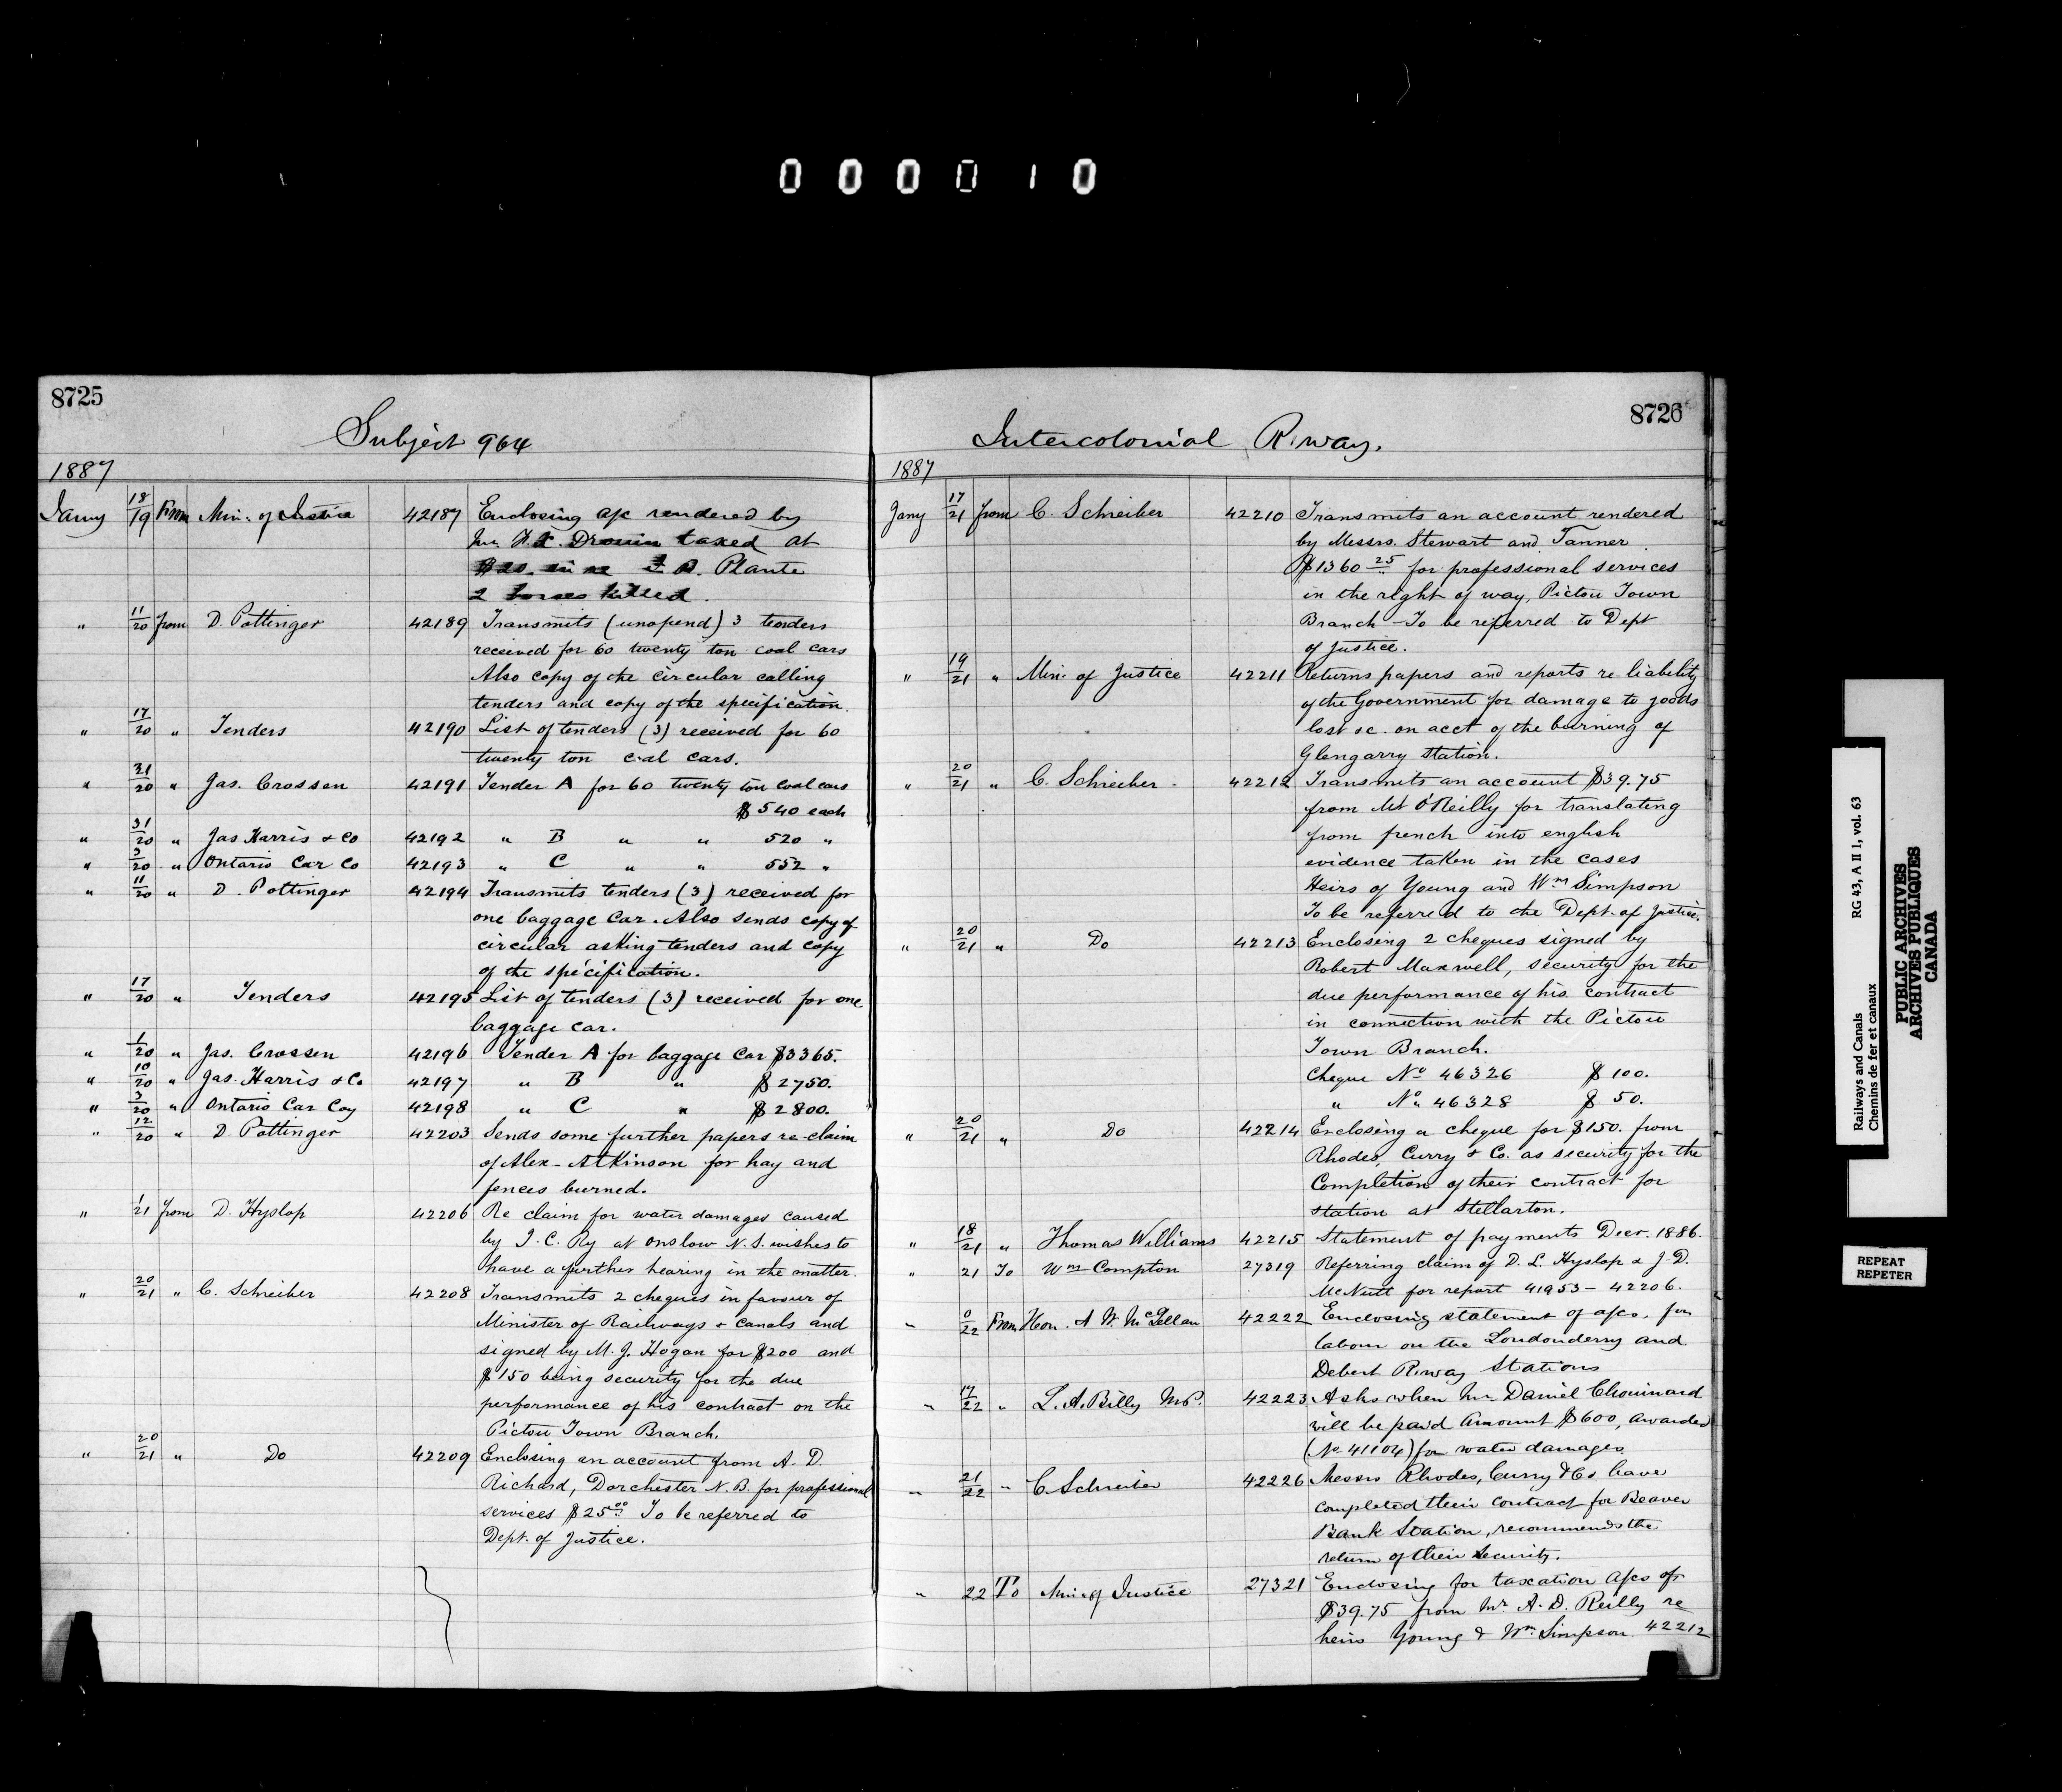 000010
8725
Subject 964
1887
Jany 18/19 From Min. of Justice 42187 Enclosing a/c rendered by
Mr. F. X. Drouin taxed at
$20. in re J. B. Plante
2 horses killed.
" 11/20 from D. Pottinger 42189 Transmits (unopend) 3 tenders
received for 60 twenty ton coal cars
Also copy of the circular calling
tenders and copy of the specification.
" 17/20 " Tenders 42190 List of tenders (3) received for 60
twenty ton coal cars.
" 31/20 " Jas. Crossen 42191 Tender A for 60 twenty ton coal cars
$540 each
" 31/20 " Jas Harris & Co 42192 " B " " 520 "
" 3/20 " Ontario Car Co 42193 " C " " 552 "
" 11/20 " D. Pottinger 42194 Transmits tenders (3) received for
one baggage car. Also sends copy of
circular asking tenders and copy
of the specification.
" 17/20 " Tenders 42195 List of tenders (3) received for one
baggage car.
" 1/20 " Jas. Crossen 42196 Tender A for baggage car $3365.
" 10/20 " Jas. Harris & Co 42197 " B " $2750.
" 3/20 " Ontario Car Coy 42198 " C " $2800.
" 12/20 " D. Pottinger 42203 Sends some further papers re claim
of Alex- Atkinson for hay and
fences burned.
" 1/21 from D. Hyslop 42206 Re claim for water damages caused
by I. C. Ry at Onslow N. S. wishes to
have a further hearing in the matter.
" 20/21 " C. Schreiber 42208 Transmits 2 cheques in favour of
Minister of Railways & Canals and
signed by M. J. Hogan for $200 and
$150 being security for the due
performance of his contract on the
Pictou Town Branch.
" 20/21 " Do 42209 Enclosing an account from A. D.
Richard, Dorchester N. B. for professional
services $25.00 To be referred to
Dept. of Justice.
8726
Intercolonial R.way.
1887
Jany 17/21 from C. Schreiber 42210 Transmits an account rendered
by Messrs. Stewart and Tanner
$1360 25 for professional services
in the right of way, Pictou Town
Branch - To be referred to Dept
of Justice.
" 19/21 " Min. of Justice 42211 Returns papers and reports re liability
of the Government for damage to goods
lost &c. on acct of the burning of
Glengarry Station.
" 20/21 " C. Schreiber 42212 Transmits an account $39.75
from Mr O'Reilly for translating
from french into english
evidence taken in the cases
Heirs of Young and Wm Simpson
To be referred to the Dept. of Justice.
" 20/21 " Do 42213 Enclosing 2 cheques signed by
Robert Maxwell, security for the
due performance of his contract
in connection with the Pictou
Town Branch.
Cheque No 46326 $100.
" No. 46328 $50.
" 20/21 " Do 42214 Enclosing a cheque for $150. from
Rhodes, Curry & Co. as security for the
Completion of their contract for
station at Stellarton.
" 18/21 " Thomas Williams 42215 Statement of payments Decr. 1886.
" 21 To Wm Compton 27319 Referring claim of D. L. Hyslop & J. D.
McNutt for report 41953 - 42206.
" 0/22 From Hon. A W. McLellan 42222 Enclosing statement of a/cs. for
labour on the Londonderry and
Debert R.way Stations
" 17/22 " L. A. Billy M.P. 42223 Asks when Mr. Daniel Chouinard
will be paid amount $600, awarded
(No 41104) for water damages.
" 21/22 " C Schreiber 42226 Messrs Rhodes, Curry & Co have
completed their contract for Beaver
Bank Station, recommends the
return of their security.
" 22 To Min. of Justice 27321 Enclosing for taxation a/cs of
$39.75 from Mr. A. D. Reilly re
heirs Young & Wm. Simpson. 42212
Railways and Canals RG 43, A II 1, vol. 63
Chemins de fer et canaux
PUBLIC ARCHIVES
ARCHIVES PUBLIQUES
CANADA
REPEAT
REPETER